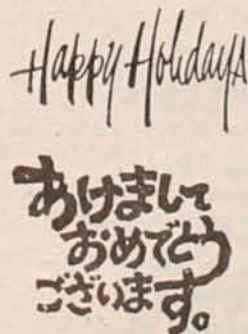 Happy Holidays
あけまして
おめでとう
ございます。